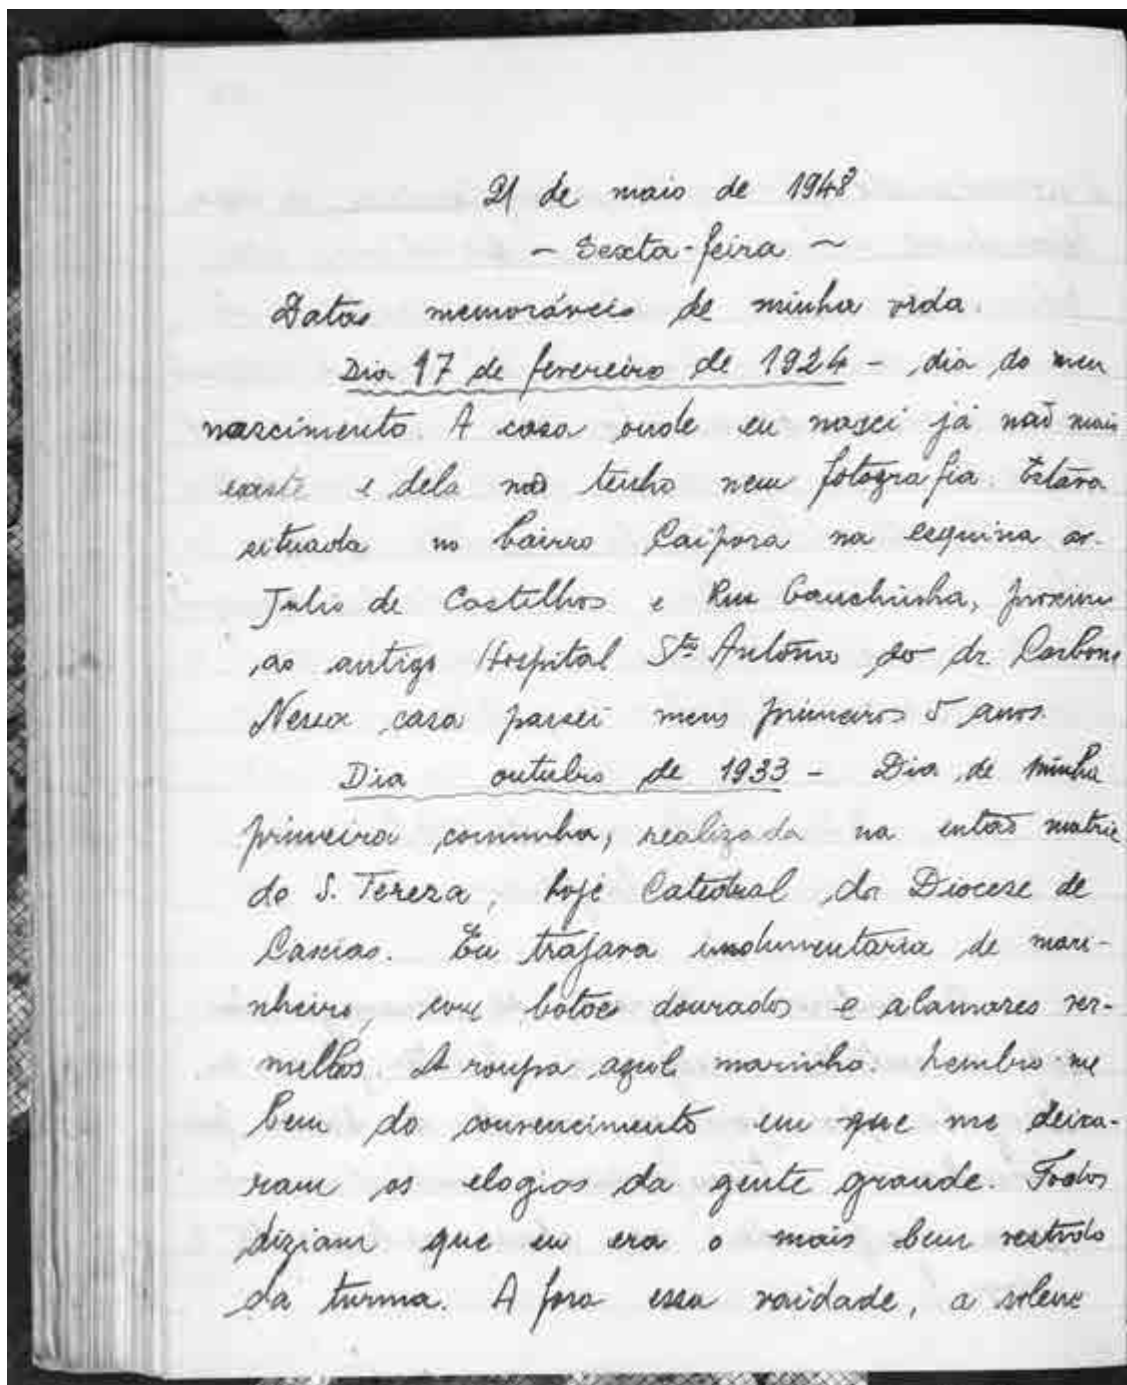 21 de maio de 1948
- Sexta-feira -
Datas memoráveis de minha vida.
Dia 17 de fevereiro de 1924 - dia do meu
nascimento. A casa onde eu nasci já não mais
existe e dela não tenho nem fotografia. Estava
situada no bairro Caipora na esquina av.
Julio de Castilhos e Rua Gauchinha, proximo
ao antigo Hospital Sto Antônio do dr. Carbone
Nessa casa passei meus primeiros 5 anos.
Dia outubro de 1933 - Dia de minha
primeira comunhão, realizada na então matriz
de S. Tereza, hoje Catedral da Diocese de
Caxias. Eu trajava indumentaria de mari-
nheiro, com botões dourados e alamares ver-
melhos. A roupa azul marinho. Lembro-me
bem do convencimento em que me deixa-
ram os elogios da gente grande. Todos
diziam que eu era o mais bem vestido
da turma. A fora essa vaidade, a solene